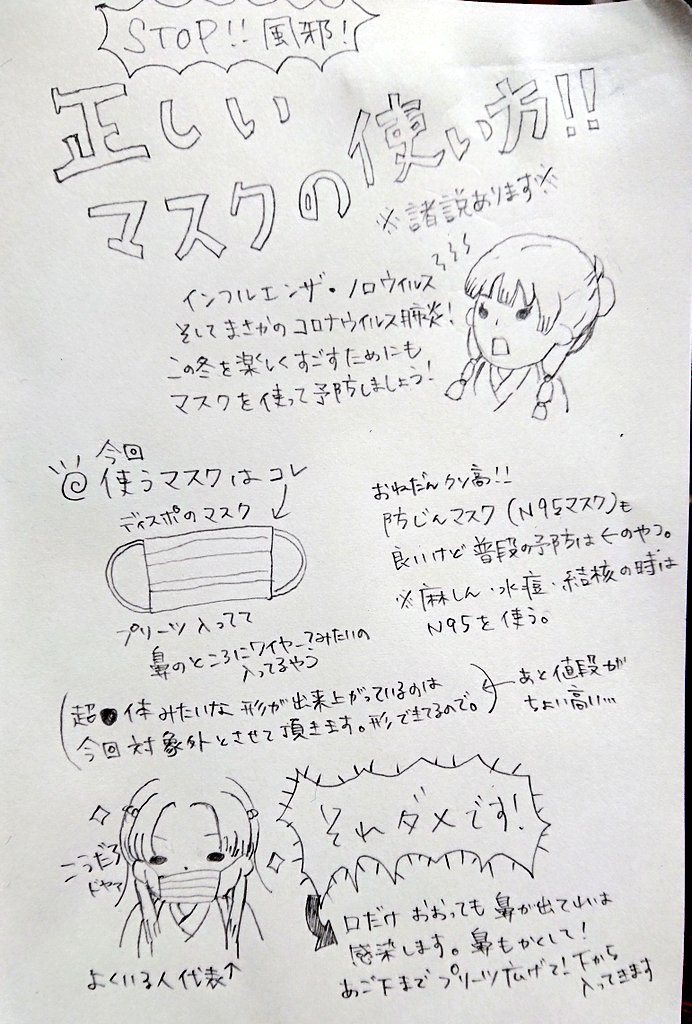 STOP!! 風邪!
正しい
マスクの使い方!!
※諸説あります※
インフルエンザ・ノロウイルス
そしてまさかのコロナウイルス肺炎!
この冬を楽しくすごすためにも
マスクを使って予防しましょう!
今回
使うマスクはコレ
ディスポのマスク
プリーツ入ってて
鼻のところにワイヤーみたいの
入ってるやつ
おねだんクソ高!!
防じんマスク(N95マスク)も
良いけど普段の予防は←のやつ。
※麻しん・水痘・結核の時は
N95を使う。
(超●体みたいな形が出来上がっているのは
今回対象外とさせて頂きます。形できてるので。)
←あと値段が
ちょい高い…
こうだろ
ドヤァ
よくいる人代表↑
それダメです!
口だけおおっても鼻が出ていれば
感染します。鼻もかくして!
あご下までプリーツ広げて!下から
入ってきます